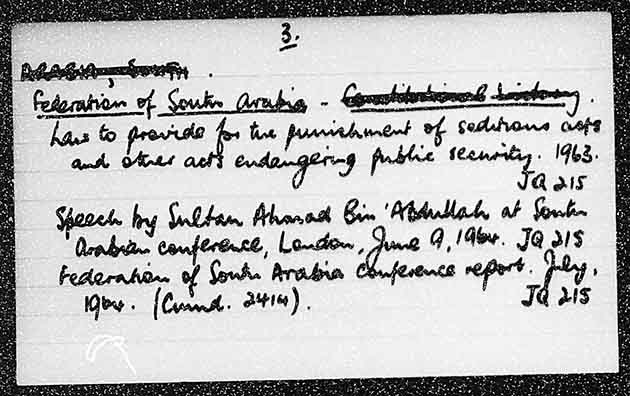 3.
ARABIA, South.
Federation of South Arabia - Constitutional history.
Law to provide for the punishment of seditious acts
and other acts endangering public security. 1963.
JQ 215
Speech by Sultan Ahmad Bin 'Abdullah at South
Arabian conference, London, June 9, 1964. JQ 215
Federation of South Arabia Conference report. July,
1964. (Cmnd. 2414). JQ 215